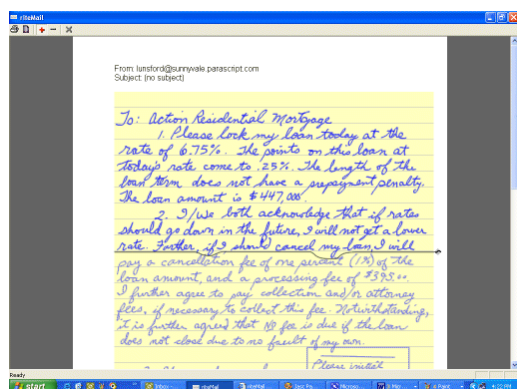 riteMail
From: lunsford@sunnyvale.parascript.com
Subject: (no subject)
To: Action Residential Mortgage
1. Please lock my loan today at the
rate of 6.75%. The points on this loan at
today's rate come to .25%. The length of the
loan term does not have a prepayment penalty.
The loan amount is $447,000
2. I/we both acknowledge that if rates
should go down in the future, I will not get a lower
rate. Further, if I should cancel my loan, I will
pay a cancellation fee of one percent (1%) of the
loan amount, and a processing fee of $395.00.
I further agree to pay collection and/or attorney
fees, if necessary to collect this fee. Notwithstanding,
it is further agreed that no fee is due if the loan
does not close due to no fault of my own.
Please initial
Ready
start
Inbox
riteMail
riteMail
Microso
4 Paint
4:22 PM